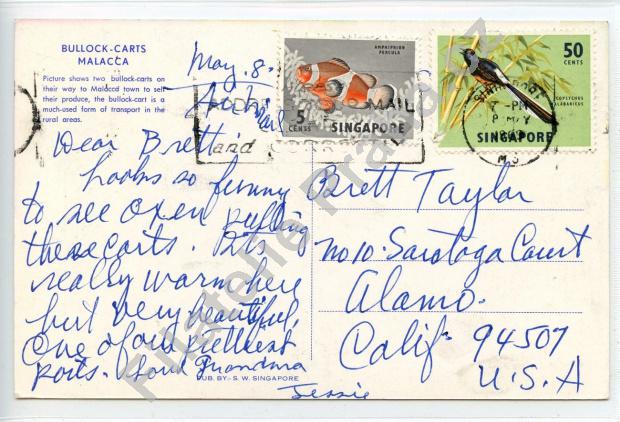 BULLOCK-CARTS
MALACCA
Picture shows two bullock-carts on
their way to Malacca town to sell
their produce, the bullock-cart is a
much-used form of transport in the
rural areas.
May. 8.
Air
mail
Dear Brett
Looks so funny
to see oxen pulling
these carts. Its
really warm here
but very beautiful,
One of our prettiest
ports. Love Grandma
Jessie
PUB. BY.- S. W. SINGAPORE
AMPHIPRION
PERCULA
5
CENTS
SINGAPORE
MAIL
and
50
CENTS
COPSYCHUS
MALABARICUS
SINGAPORE
7-PM
8 MY
Brett Taylor
no 10. Saratoga Court
Alamo.
Calif. 94507
U.S.A
Filatelie Franc